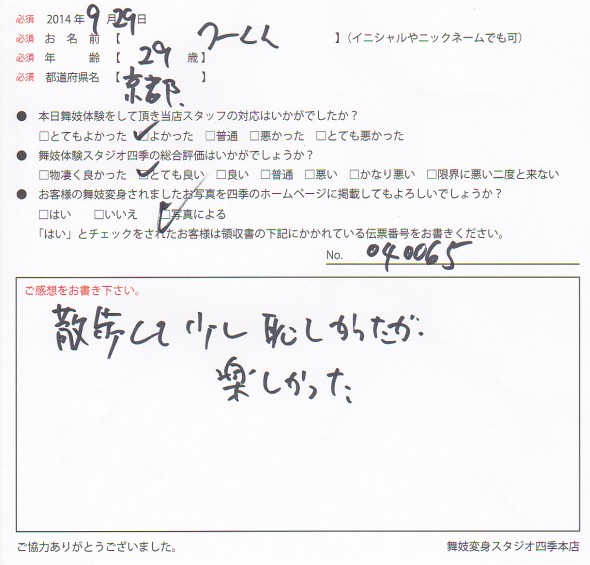 必須 2014年9月29日
必須 お名前【つーくん】(イニシャルやニックネームでも可)
必須 年齢【29歳】
必須 都道府県名【京都】
● 本日舞妓体験をして頂き当店スタッフの対応はいかがでしたか?
□とてもよかった ☑よかった □普通 □悪かった □とても悪かった
● 舞妓体験スタジオ四季の総合評価はいかがでしょうか?
□物凄く良かった ☑とても良い □良い □普通 □悪い □かなり悪い □限界に悪い二度と来ない
● お客様の舞妓変身されましたお写真を四季のホームページに掲載してもよろしいでしょうか?
□はい □いいえ ☑写真による
「はい」とチェックをされたお客様は領収書の下記にかかれている伝票番号をお書きください。
No. 040065
ご感想をお書き下さい。
散歩して少し恥しかったが
楽しかった
ご協力ありがとうございました。 舞妓変身スタジオ四季本店